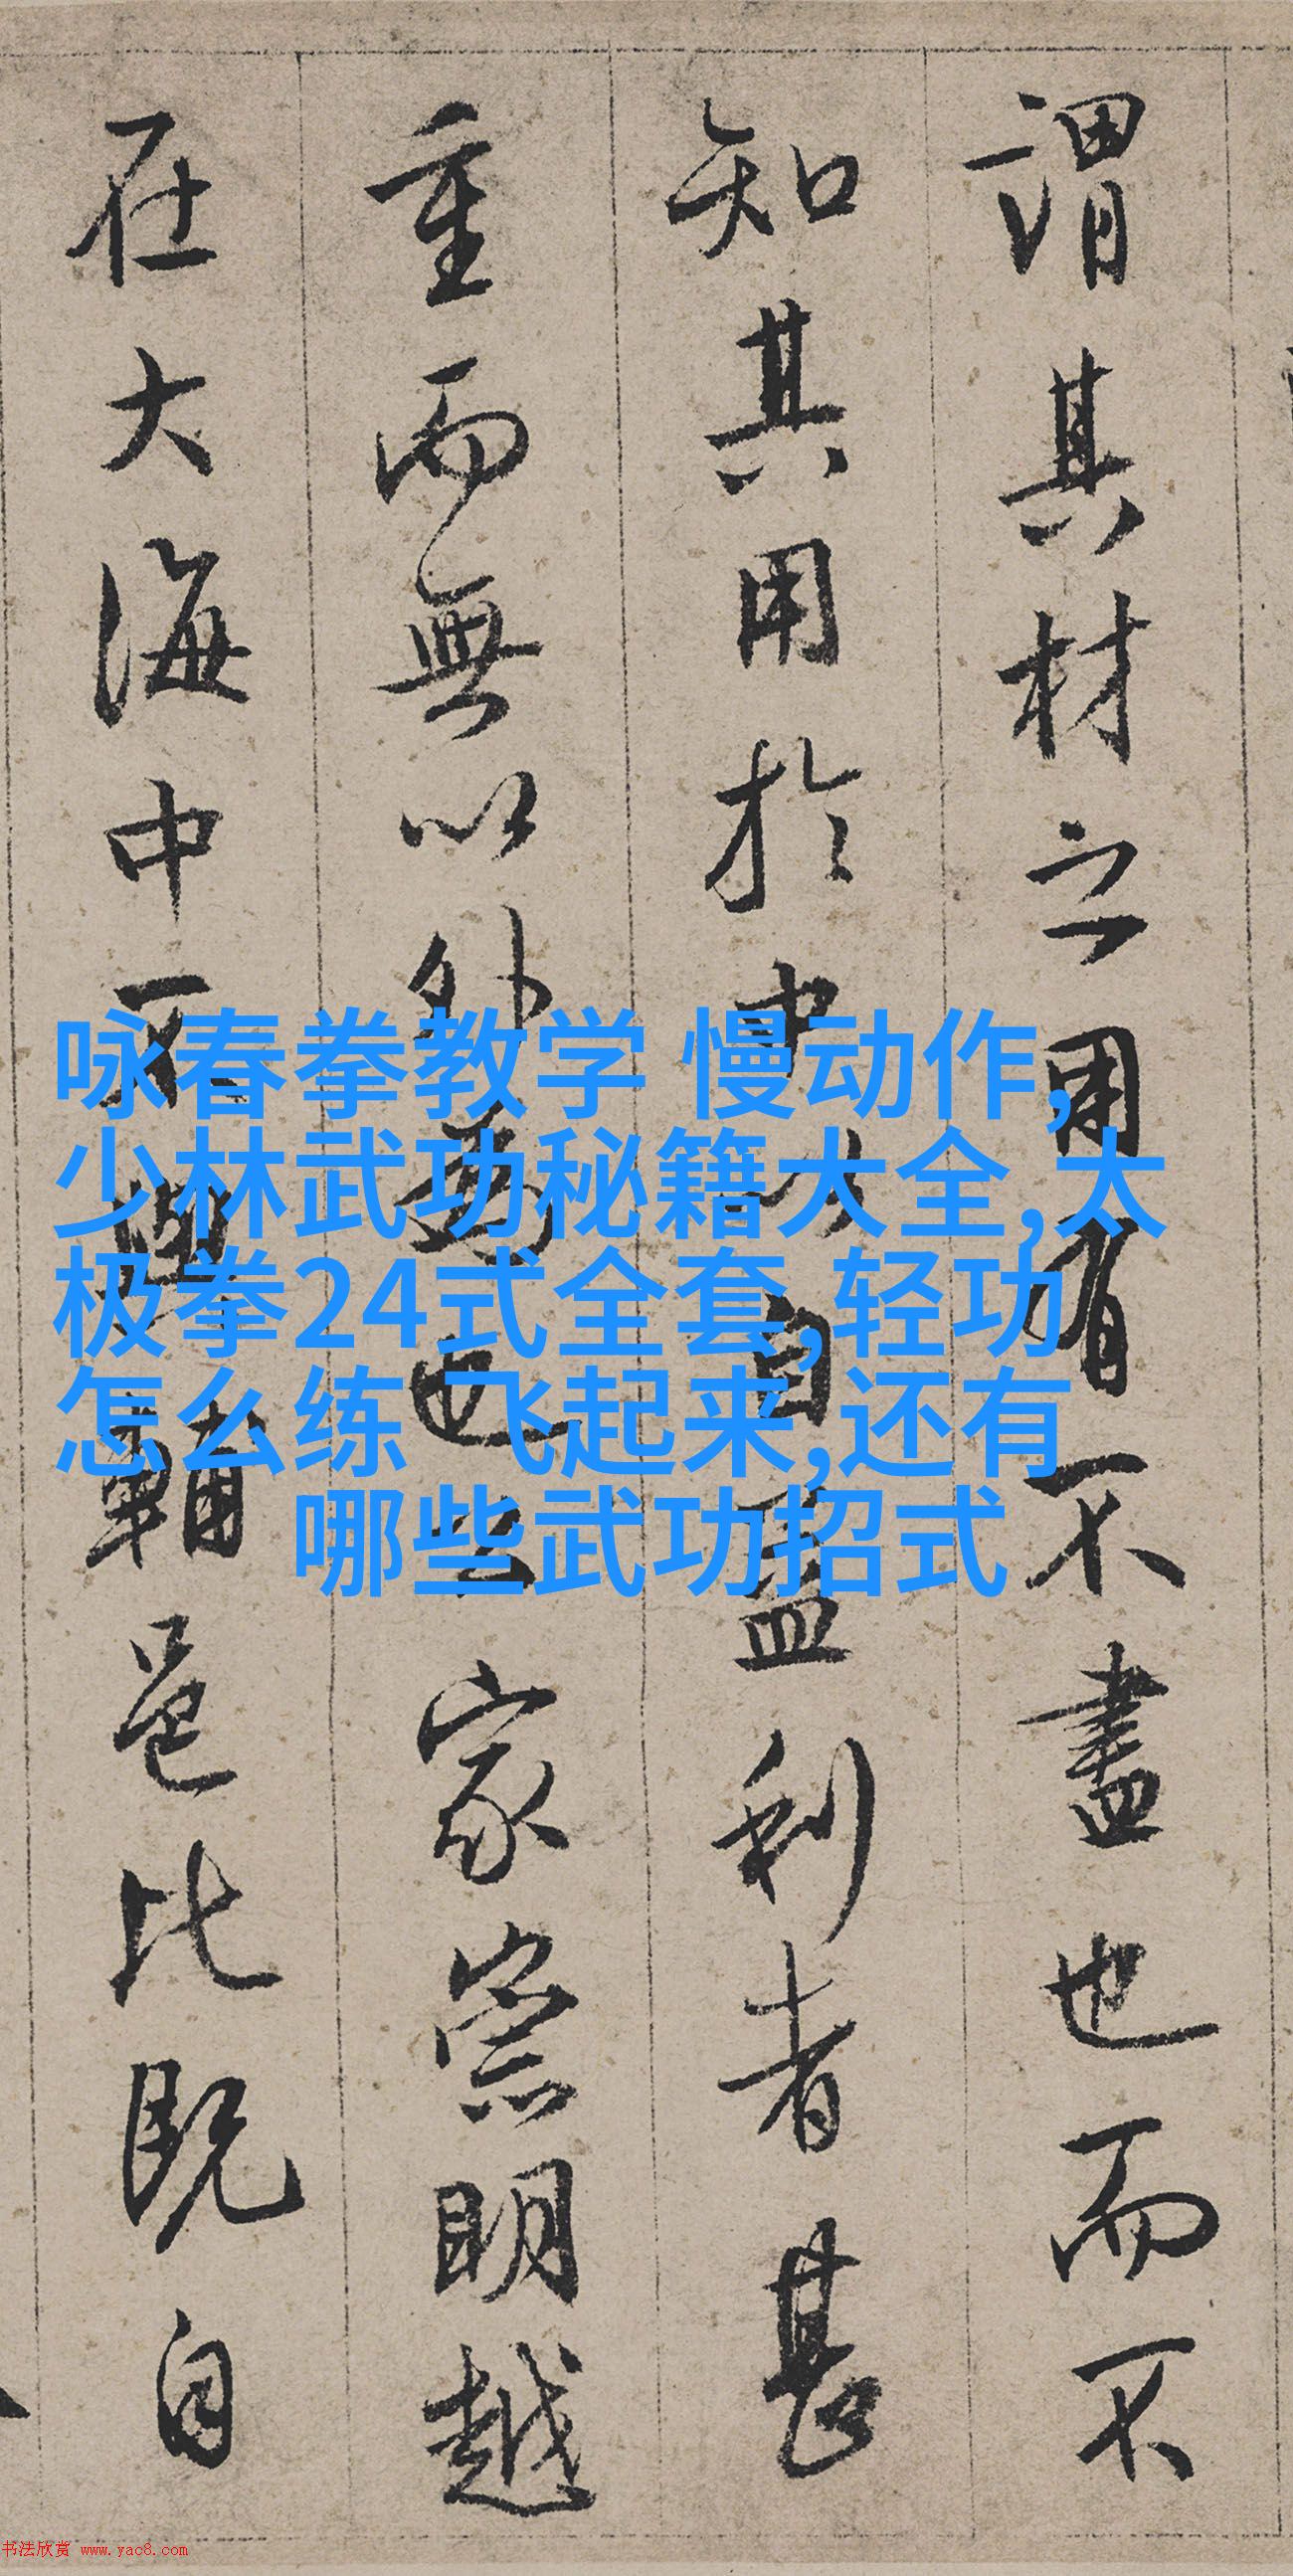 謂其材之用有不盡也而不
知其用於中自利者甚
重而無以外也家崇明越
在大海中不與輔邑比既自
咏春拳教学 慢动作,
少林武功秘籍大全,太
极拳24式全套,轻功
怎么练 飞起来,还有
哪些武功招式
书法欣赏 www.yac8.com